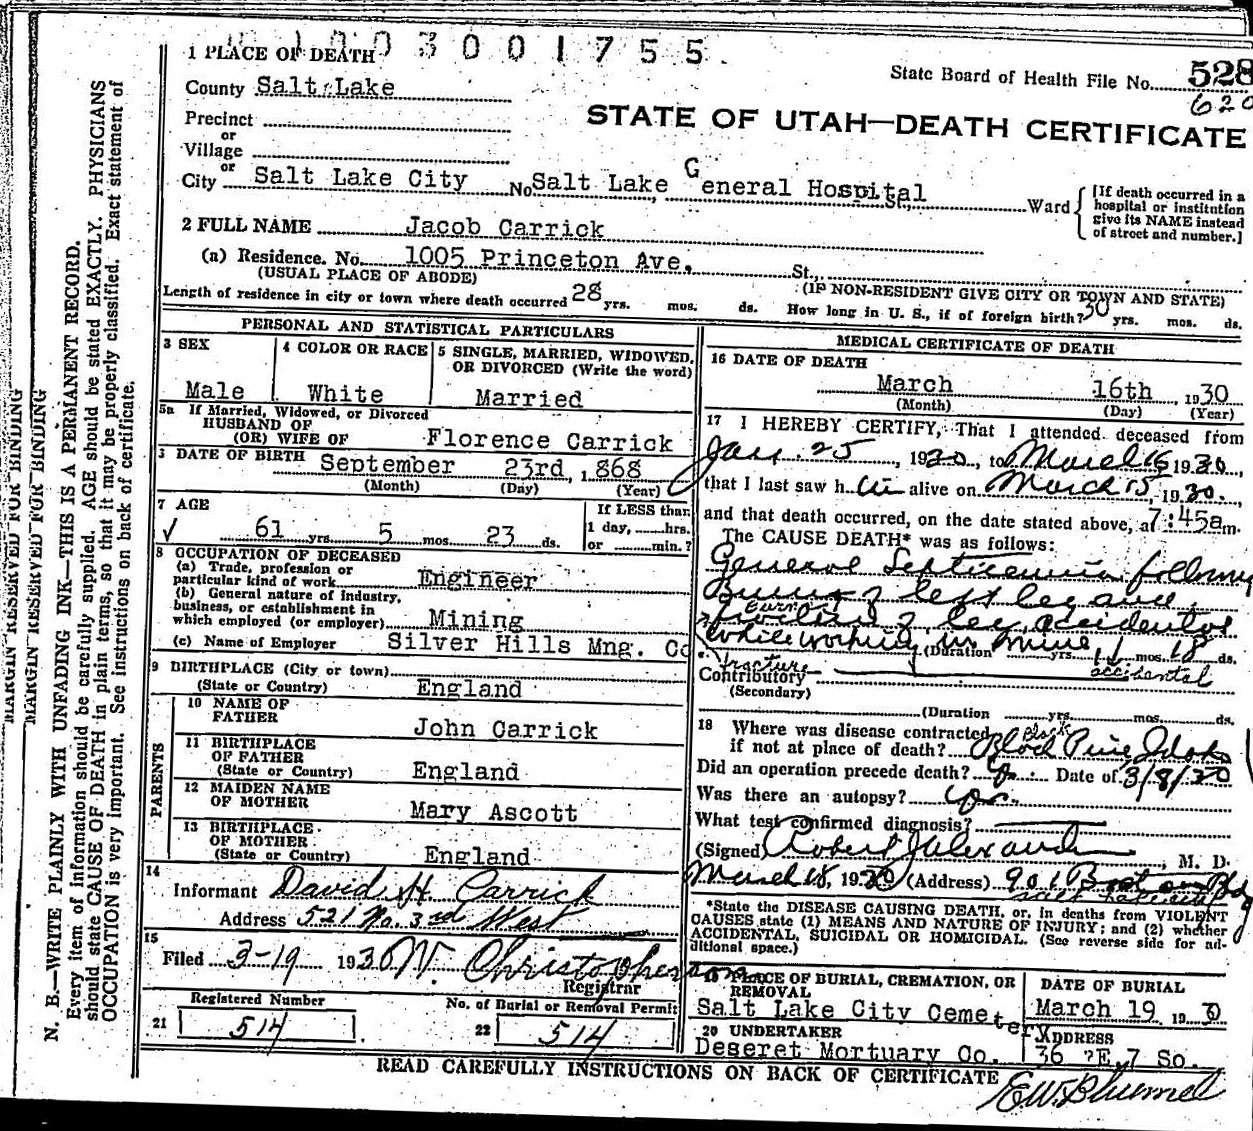 1 PLACE OF DEATH 3 0 0 1 7 5 5
State Board of Health File No. 528
620
County Salt Lake
STATE OF UTAH—DEATH CERTIFICATE
Precinct
or
Village
or
City Salt Lake City No Salt Lake General Hospital St., Ward
[If death occurred in a hospital or institution give its NAME instead of street and number.]
2 FULL NAME Jacob Carrick
(a) Residence. No. 1005 Princeton Ave. St.,
(USUAL PLACE OF ABODE) (IF NON-RESIDENT GIVE CITY OR TOWN AND STATE)
Length of residence in city or town where death occurred 28 yrs. mos. ds. How long in U. S., if of foreign birth? 30 yrs. mos. ds.
PERSONAL AND STATISTICAL PARTICULARS
3 SEX
Male
4 COLOR OR RACE
White
5 SINGLE, MARRIED, WIDOWED, OR DIVORCED (Write the word)
Married
5a If Married, Widowed, or Divorced
HUSBAND OF
(OR) WIFE OF Florence Carrick
DATE OF BIRTH September 23rd, 1868
(Month) (Day) (Year)
7 AGE
61 yrs. 5 mos. 23 ds.
If LESS than
1 day, hrs.
or min.?
8 OCCUPATION OF DECEASED
(a) Trade, profession or
particular kind of work Engineer
(b) General nature of industry,
business, or establishment in
which employed (or employer) Mining
(c) Name of Employer Silver Hills Mng. Co.
9 BIRTHPLACE (City or town)
(State or Country) England
PARENTS
10 NAME OF
FATHER John Carrick
11 BIRTHPLACE
OF FATHER
(State or Country) England
12 MAIDEN NAME
OF MOTHER Mary Ascott
13 BIRTHPLACE
OF MOTHER
(State or Country) England
14
Informant David H. Carrick
Address 521 No. 3rd West
15
Filed 3-19 1930 W. Christopherson
Registrar
Registered Number
21 514
No. of Burial or Removal Permit
22 514
MEDICAL CERTIFICATE OF DEATH
16 DATE OF DEATH
March 16th, 1930
(Month) (Day) (Year)
17 I HEREBY CERTIFY, That I attended deceased from
Jan. 25, 1930, to March 16 1930,
that I last saw him alive on March 15, 1930.
and that death occurred, on the date stated above, at 7:45 a m.
The CAUSE DEATH* was as follows:
General Septicemia following
burns of left leg and
Burns
fracture of leg accidental
while working in mine
(Duration yrs. 1 mos. 18 ds.
fracture accidental
Contributory
(Secondary)
(Duration yrs. mos. ds.
18 Where was disease contracted
Black
if not at place of death? Black Pine Idaho
Did an operation precede death? Date of 3/8/30
Was there an autopsy? yes.
What test confirmed diagnosis?
(Signed) Robert J Alexander, M. D.
March 18, 1930 (Address) 901 Boston Bldg
*State the DISEASE CAUSING DEATH, or, in deaths from VIOLENT
CAUSES state (1) MEANS AND NATURE OF INJURY; and (2) whether
ACCIDENTAL, SUICIDAL OR HOMICIDAL. (See reverse side for ad-
ditional space.)
PLACE OF BURIAL, CREMATION, OR
REMOVAL
Salt Lake City Cemetery
DATE OF BURIAL
March 19 19 0
20 UNDERTAKER
Deseret Mortuary Co.
ADDRESS
36 E. 7 So.
READ CAREFULLY INSTRUCTIONS ON BACK OF CERTIFICATE
MARGIN RESERVED FOR BINDING
MARGIN RESERVED FOR BINDING
N. B.—WRITE PLAINLY WITH UNFADING INK—THIS IS A PERMANENT RECORD.
Every item of information should be carefully supplied. AGE should be stated EXACTLY. PHYSICIANS
should state CAUSE OF DEATH in plain terms, so that it may be properly classified. Exact statement of
OCCUPATION is very important. See instructions on back of certificate.